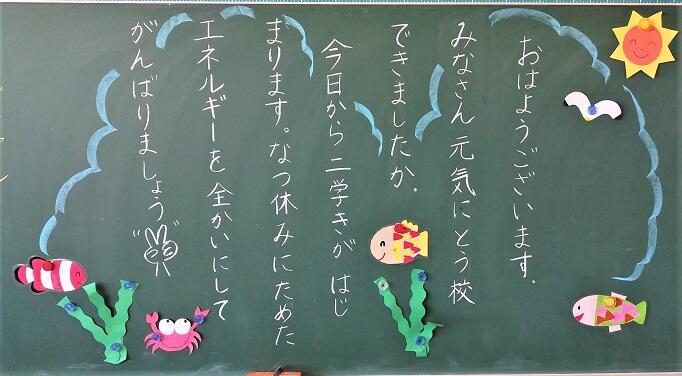 おはようございます。
みなさん元気にとう校
できましたか。
今日から二学きが はじ
まります。なつ休みにためた
エネルギーを全かいにして
がんばりましょう